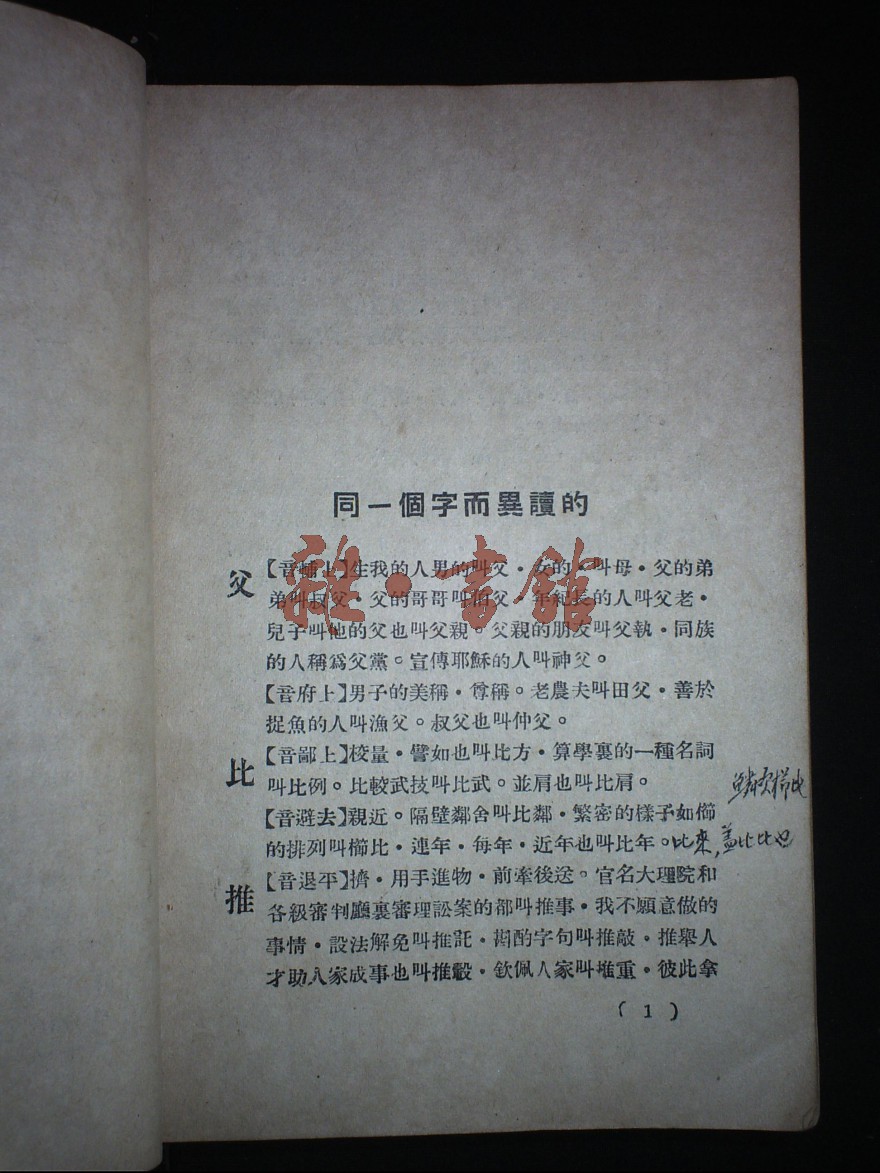 同一個字而異讀的
父
【音 上】生我的人男的叫父・女的・叫母・父的弟
弟叫叔父・父的哥哥叫伯父・年紀長的人叫父老・
兒子叫他的父也叫父親。父親的朋友叫父執・同族
的人稱爲父黨。宣傳耶穌的人叫神父。
【音府上】男子的美稱・尊稱。老農夫叫田父・善於
捉魚的人叫漁父。叔父也叫仲父。
比
【音鄙上】校量・譬如也叫比方・算學裏的一種名詞
叫比例。比較武技叫比武。並肩也叫比肩。
鱗次櫛比
【音避去】親近。隔壁鄰舍叫比鄰・繁密的樣子如櫛
的排列叫櫛比・連年・每年・近年也叫比年。比來,蓋比比也
推
【音退平】擠・用手進物・前牽後送。官名大理院和
各級審判廳裏審理訟案的都叫推事・我不願意做的
事情・設法解免叫推託・斟酌字句叫推敲・推舉人
才助人家成事也叫推轂・欽佩人家叫推重・彼此拿
( 1 )
雜・書館